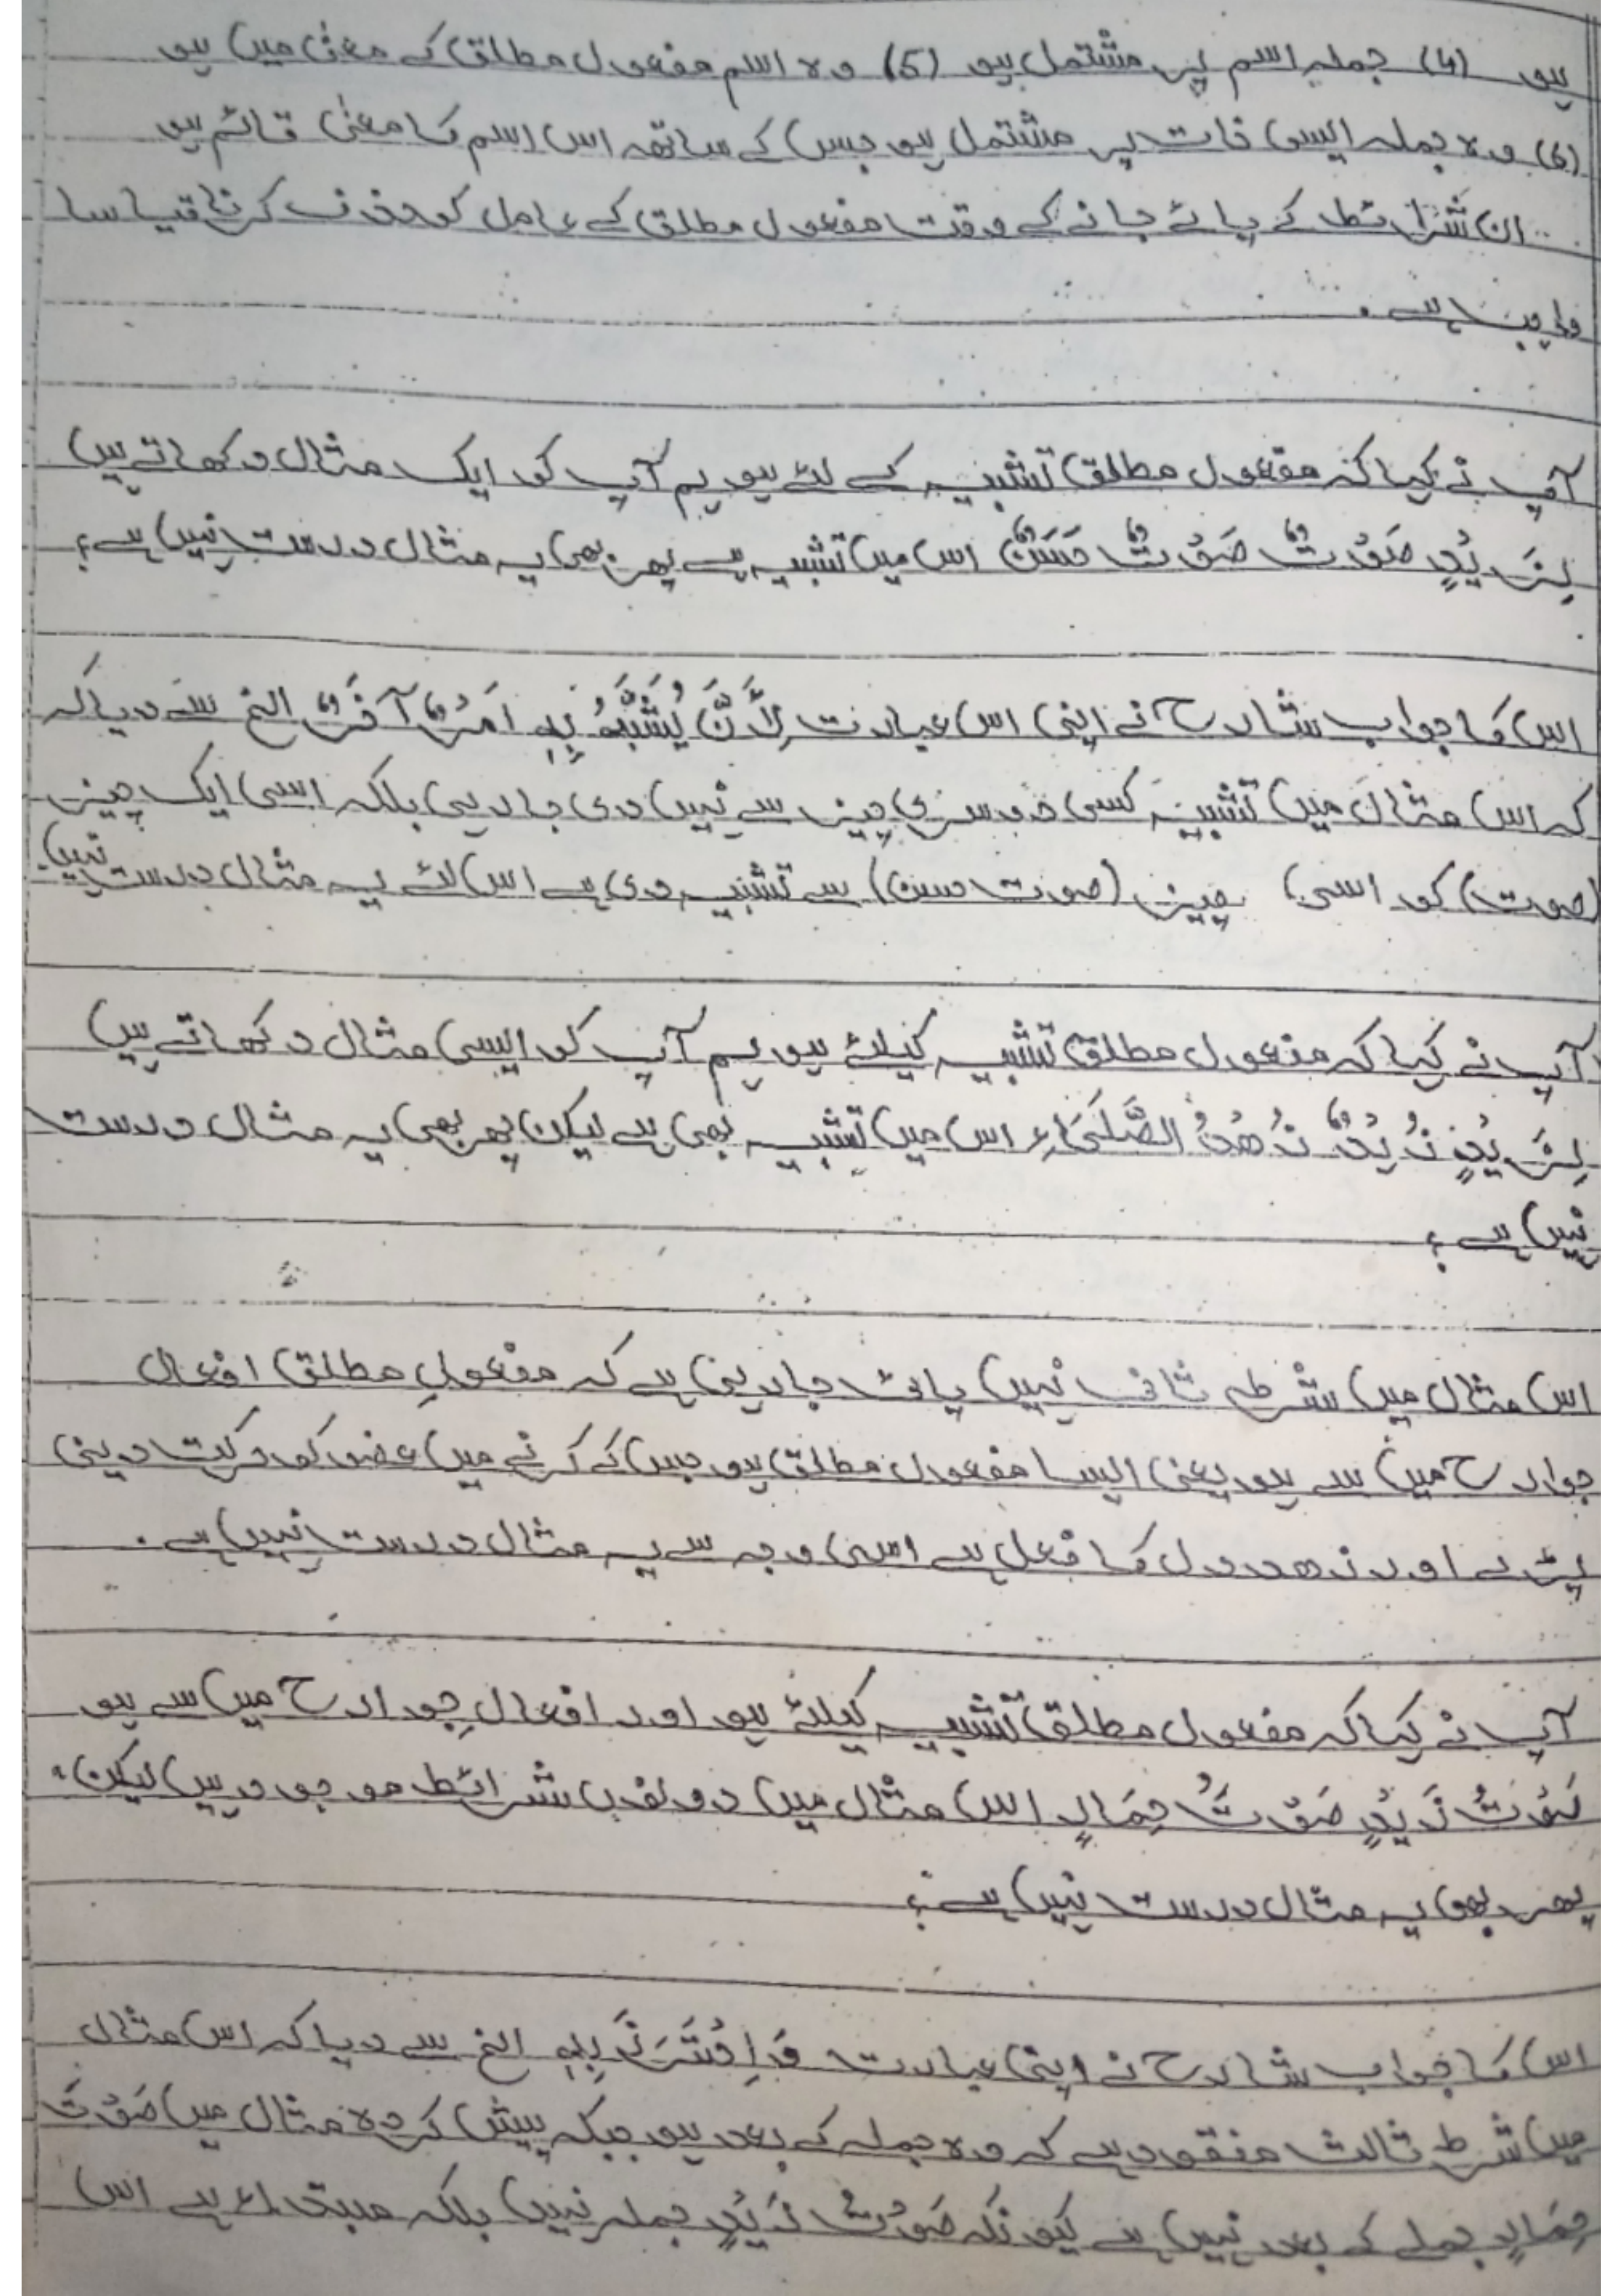 ہو (4) جملہ اسم پر مشتمل ہو (5) وہ اسم مفعول مطلق کے معنیٰ میں ہو
(6) وہ جملہ ایسی ذات پر مشتمل ہو جس کے ساتھ اس اسم کا معنیٰ قائم ہو
ان شرائط کے پائے جانے کے وقت مفعول مطلق کے عامل کو حذف کرنا قیاسا
واجب ہے .
آپ نے کہا کہ مفعول مطلق تشبیہ کے لئے ہو ہم آپ کو ایک مثال دکھاتے ہیں
لِزَیْدٍ صَوْتٌ صَوْتٌ حَسَنٌ اس میں تشبیہ ہے پھر بھی یہ مثال درست نہیں ہے؟
اس کا جواب شارح نے اپنی اس عبارت لِاَنَّ یُشَبَّهُ بِهٖ اَمْرٌ آخَرٌ الخ سے دیا کہ
کہ اس مثال میں تشبیہ کسی دوسری چیز سے نہیں دی جا رہی بلکہ اسی ایک چیز
(صوت) کو اسی چیز (صوت حسن) سے تشبیہ دی ہے اس لئے یہ مثال درست نہیں
آپ نے کہا کہ مفعول مطلق تشبیہ کیلئے ہو ہم آپ کو ایسی مثال دکھاتے ہیں
لِزَیْدٍ زُہْدٌ زُهْدُ الصُّلَحَاءِ اس میں تشبیہ بھی ہے لیکن پھر بھی یہ مثال درست
نہیں ہے ؟
اس مثال میں شرط ثانی نہیں پائی جا رہی ہے کہ مفعولِ مطلق افعال
جوارح میں سے ہو یعنی ایسا مفعول مطلق ہو جس کے کرنے میں عضو کو حرکت دینی
پڑے اور زھد دل کا فعل ہے اسی وجہ سے یہ مثال درست نہیں ہے .
آپ نے کہا کہ مفعول مطلق تشبیہ کیلئے ہو اور افعالِ جوارح میں سے ہو
صَوْتُ زَیْدٍ صَوْتُ حِمَارٍ اس مثال میں دونوں شرائط موجود ہیں لیکن
پھر بھی یہ مثال درست نہیں ہے ؟
اس کا جواب شارح نے اپنی عبارت وَاِحْتَرَزَ بِهٖ الخ سے دیا کہ اس مثال
میں شرط ثالث مفقود ہے کہ وہ جملہ کے بعد ہو جبکہ پیش کردہ مثال میں صَوْتُ
حِمَارٍ جملے کے بعد نہیں ہے کیونکہ صَوْتُ زَیْدٍ جملہ نہیں بلکہ مبتداء ہے اس